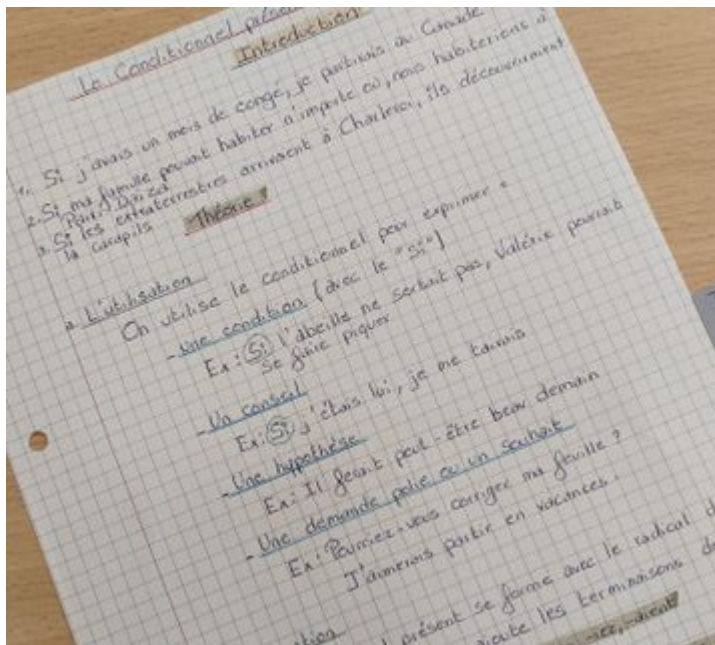 Le Conditionnel présent
Introduction
1. Si j'avais un mois de congé, je partirais au Canada
2. Si ma famille pouvait habiter n'importe où, nous habiterions à
3. Si les extraterrestres arrivaient à Charleroi, ils découvriraient
la
Théorie :
a. L'utilisation
On utilise le conditionnel pour exprimer :
- Une condition (avec le "si")
Ex : Si l'abeille ne sortait pas, Valérie pourrait
se faire piquer
- Un conseil
Ex : Si j'étais lui, je me tairais
- Une hypothèse
Ex : Il ferait peut-être beau demain
- Une demande polie ou un souhait
Ex : Pourriez-vous corriger ma feuille ?
J'aimerais partir en vacances.
présent se forme avec le radical d
les terminaisons de
-iez, -aient